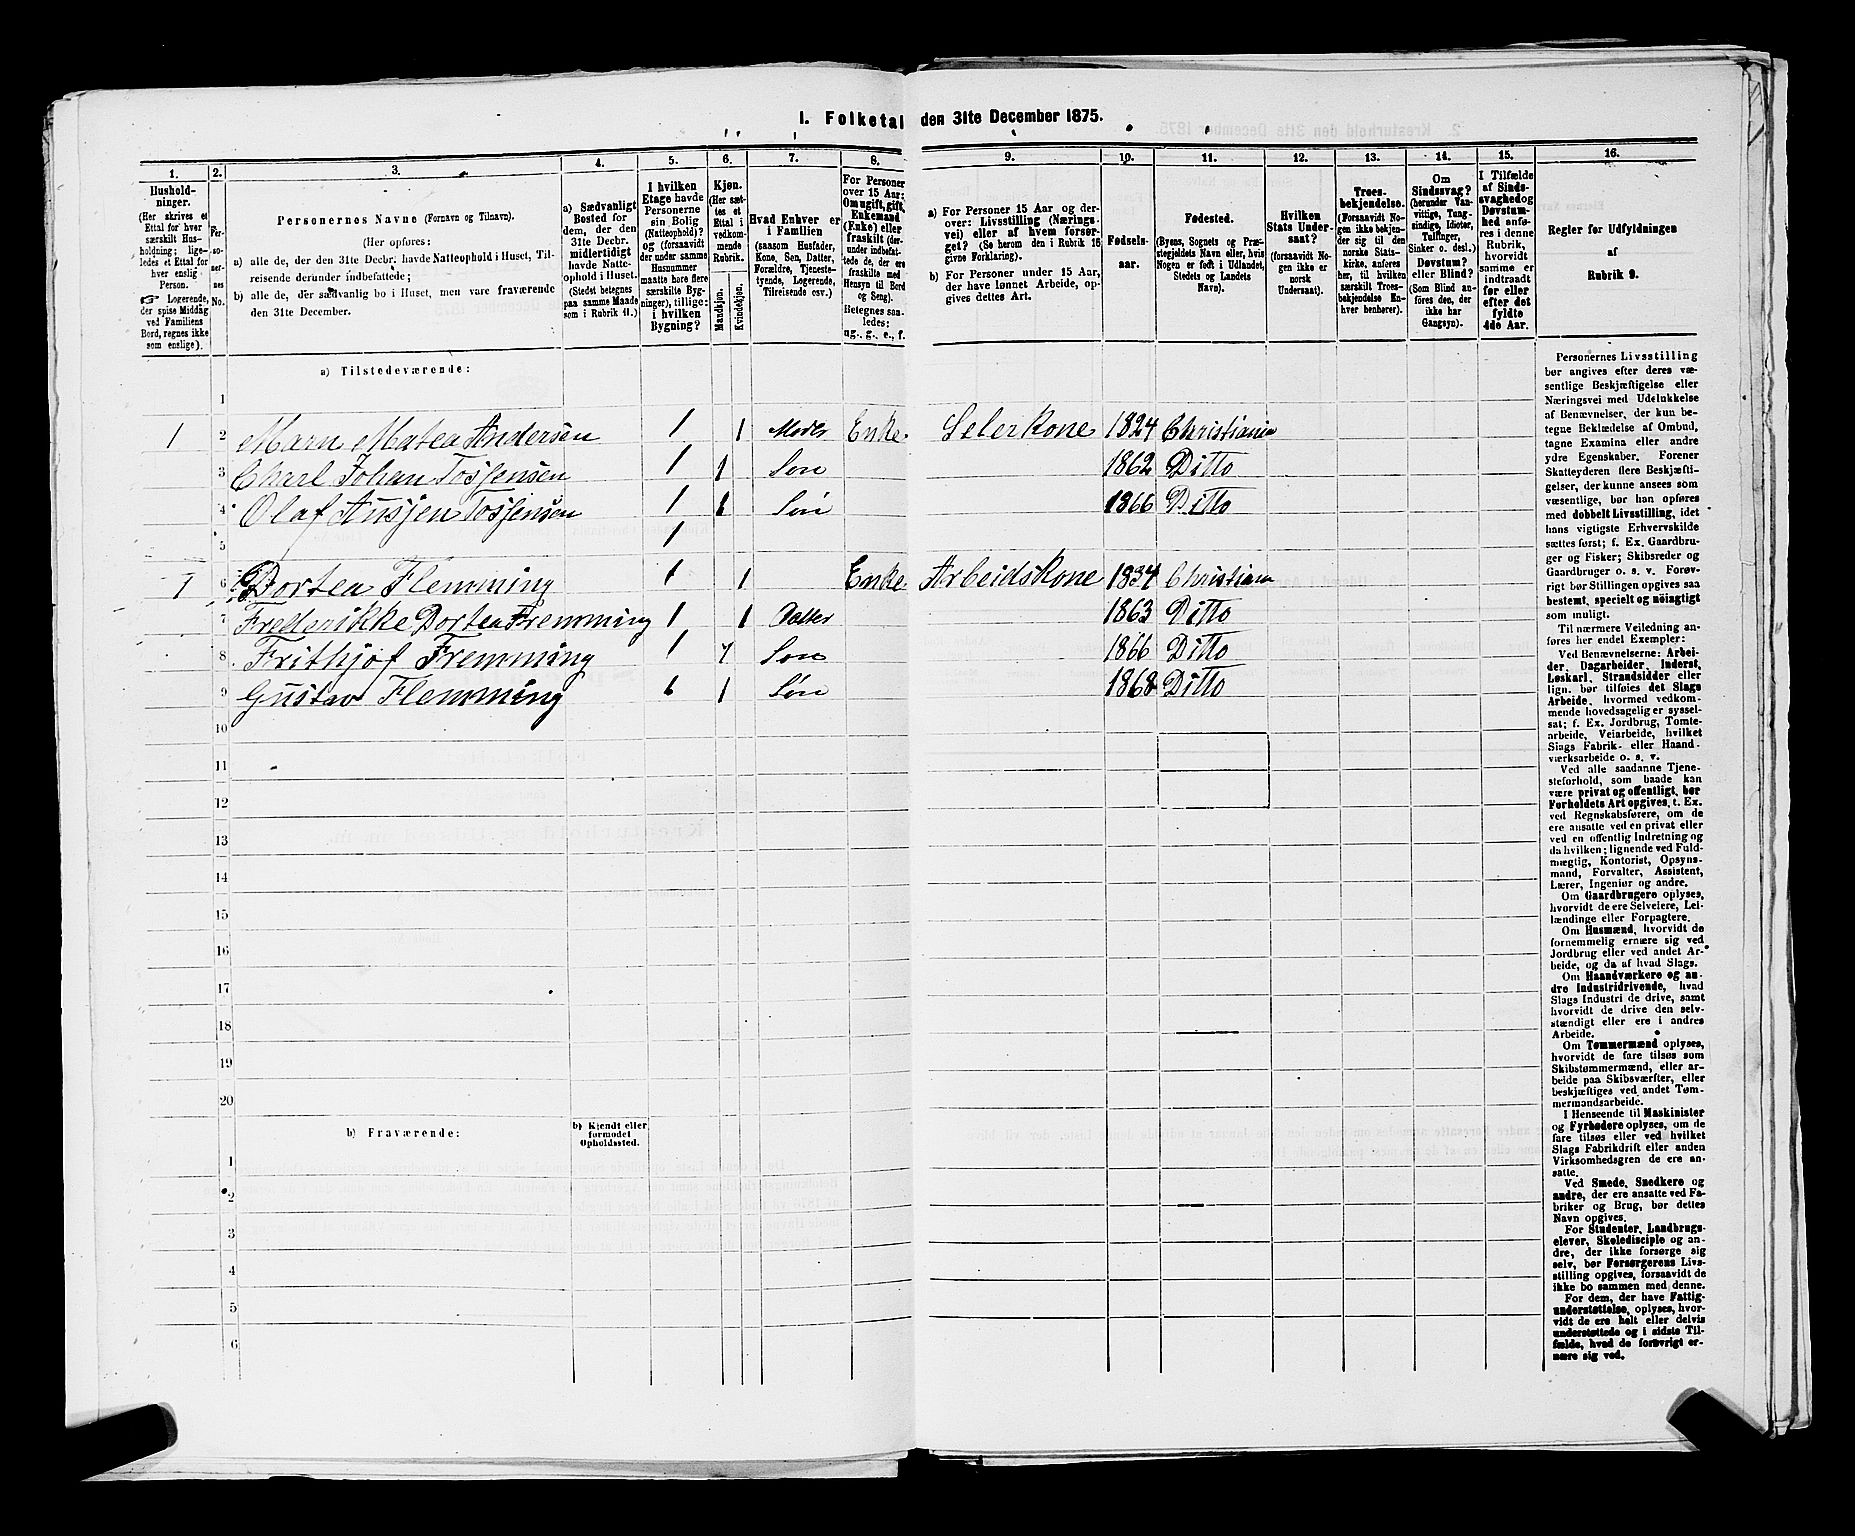 1. Folketal den 31te December 1875.
1. 2. 3. 4. 5. 6. 7. 8. 9. 10. 11. 12. 13. 14. 15. 16.
Husholdninger.
(Her skrives et Ettal for hver særskilt Husholdning; ligeledes et Ettal for hver enslig Person.
☞ Logerende, der spise Middag ved Familiens Bord, regnes ikke som enslige).
Personernes No.
Personernes Navne (Fornavn og Tilnavn).
(Her opføres:
a) alle de, der den 31te Decbr. havde Natteophold i Huset, Tilreisende derunder indbefattede;
b) alle de, der sædvanlig bo i Huset, men vare fraværende den 31te December.
a) Sædvanligt Bosted for dem, der den 31te Decbr. midlertidigt havde Natteophold i Huset.
(Stedet betegnes paa samme Maade som i Rubrik 11.)
I hvilken Etage havde Personerne sin Bolig (Natteophold)? og (forsaavidt der under samme Husnummer maatte høre flere særskilte Bygninger), tillige: i hvilken Bygning?
Kjøn.
(Her sættes et Ettal i vedkommende Rubrik.
Mandkjøn.
Kvindekjøn.
Hvad Enhver er i Familien
(saasom Husfader, Kone, Søn, Datter, Forældre, Tjenestetyende, Logerende, Tilreisende osv.)
For Personer over 15 Aar: Om ugift, gift, Enkemand (Enke) eller fraskilt (derunder indbefattede de, der ere fraskilte med Hensyn til Bord og Seng).
Betegnes saaledes:
ug., g., e., f.
a) For Personer 15 Aar og derover: Livsstilling (Næringsvei) eller af hvem forsørget? (Se herom den i Rubrik 16 givne Forklaring).
b) For Personer under 15 Aar, der have lønnet Arbeide, opgives dettes Art.
Fødselsaar.
Fødested.
(Byens, Sognets og Præstegjeldets Navn eller, hvis Nogen er født i Udlandet, Stedets og Landets Navn).
Hvilken Stats Undersaat?
(forsaavidt Nogen ikke er norsk Undersaat).
Troesbekjendelse.
(Forsaavidt Nogen ikke bekjender sig til den norske Statskirke, anføres her, til hvilken særskilt Troesbekjendelse Enhver benhører).
Om Sindssvag? (herunder Vanvittige, Tungsindige, Idioter, Tullinger, Sinker o. desl.) Døvstum? eller Blind?
(Som Blind anføres den, der ikke har Gangsyn).
I Tilfælde af Sindssvaghed og Døvstumhed anføres i denne Rubrik, hvorvidt samme er indtraadt før eller efter det fyldte 4de Aar.
Regler for Udfyldningen af Rubrik 9.
a) Tilstedeværende:
1
1 2 Maren Matea Andersen 1 1 Moder Enke Selerkone 1824 Christiania
3 Charl Johan Tosjensen 1 1 Søn 1862 Ditto
4 Olaf Ausjen Tosjensen 1 1 Søn 1866 Ditto
5 1
1 6 Dortea Flemming 1 1 Enke Arbeidskone 1834 Christiania
7 Frederikke Dortea Fremming 1 1 Datter 1863 Ditto
8 Frithjof Fremming 1 1 Søn 1866 Ditto
9 Gustav Flemming 1 1 Søn 1868 Ditto
10
11
12
13
14
15
16
17
18
19
20
b) Fraværende:
b) Kjendt eller formodet Opholdssted.
1
2
3
4
5
6
Personernes Livsstilling
bør angives efter deres væ-
sentlige Beskjæftigelse eller
Næringsvei med Udelukkelse
af Benævnelser, der kun be-
tegne Beklædelse af Ombud,
tagne Examina eller andre
ydre Egenskaber. Forener
Skatteyderen flere Beskjæfti-
gelser, der kunne ansees som
væsentlige, bør han opføres
med dobbelt Livsstilling, idet
hans vigtigste Erhvervskilde
sættes først; f. Ex. Gaardbru-
ger og Fisker; Skibsreder og
Gaardbruger o. s. v. Forøv-
rigt bør Stillingen opgives saa
bestemt, specielt og nøiagtigt
som muligt.
Til nærmere Veiledning an-
føres her endel Exempler:
Ved Benævnelserne: Arbei-
der, Dagarbeider, Inderst,
Løskarl, Strandsidder eller
lign. bør tilføies det Slags
Arbeide, hvormed vedkom-
mende hovedsagelig er syssel-
sat; f. Ex. Jordbrug, Tomte-
arbeide, Veiarbeide, hvilket
Slags Fabrik- eller Haand-
værksarbeide o. s. v.
Ved alle saadanne Tjene-
steforhold, som baade kan
være privat og offentligt, bør
Forholdets Art opgives, t. Ex.
ved Regnskabsførere, om de
ere ansatte ved en privat eller
ved en offentlig Indretning og
da hvilken; lignende ved Fuld-
mægtig, Kontorist, Opsyns-
mand, Forvalter, Assistent,
Lærer, Ingeniør og andre.
Om Gaardbrugere oplyses,
hvorvidt de ere Selveiere, Lei-
lændinge eller Forpagtere.
Om Husmænd, hvorvidt de
fornemmelig ernære sig ved
Jordbrug eller ved andet Ar-
beide, og da af hvad Slags.
Om Haandværkere og an-
dre Industridrivende, hvad
Slags Industri de drive, samt
hvorvidt de drive den selv-
stændigt eller ere i andres
Arbeide.
Om Tømmermænd oplyses,
hvorvidt de fare tilsøs som
Skibstømmermænd, eller ar-
beide paa Skibsværfter, eller
beskjæftiges ved andet Tøm-
mermandsarbeide.
I Henseende til Maskinister
og Fyrbødere oplyses, om de
fare tilsøs eller ved hvilket
Slags Fabrikdrift eller anden
Virksomhedsgren de ere an-
satte.
Ved Smede, Snedkere og
andre, der ere ansatte ved Fa-
briker og Brug, bør dettes
Navn opgives.
For Studenter, Landbrugs-
elever, Skoledisciple og an-
dre, der ikke forsørge sig
selv, bør Forsørgerens Livs-
stilling opgives, forsaavidt de
ikke bo sammen med denne.
For dem, der have Fattig-
understøttelse, oplyses, hvor-
vidt de ere helt eller delvis
understøttede og i sidste Til-
fælde, hvad de forøvrigt er-
nære sig ved.